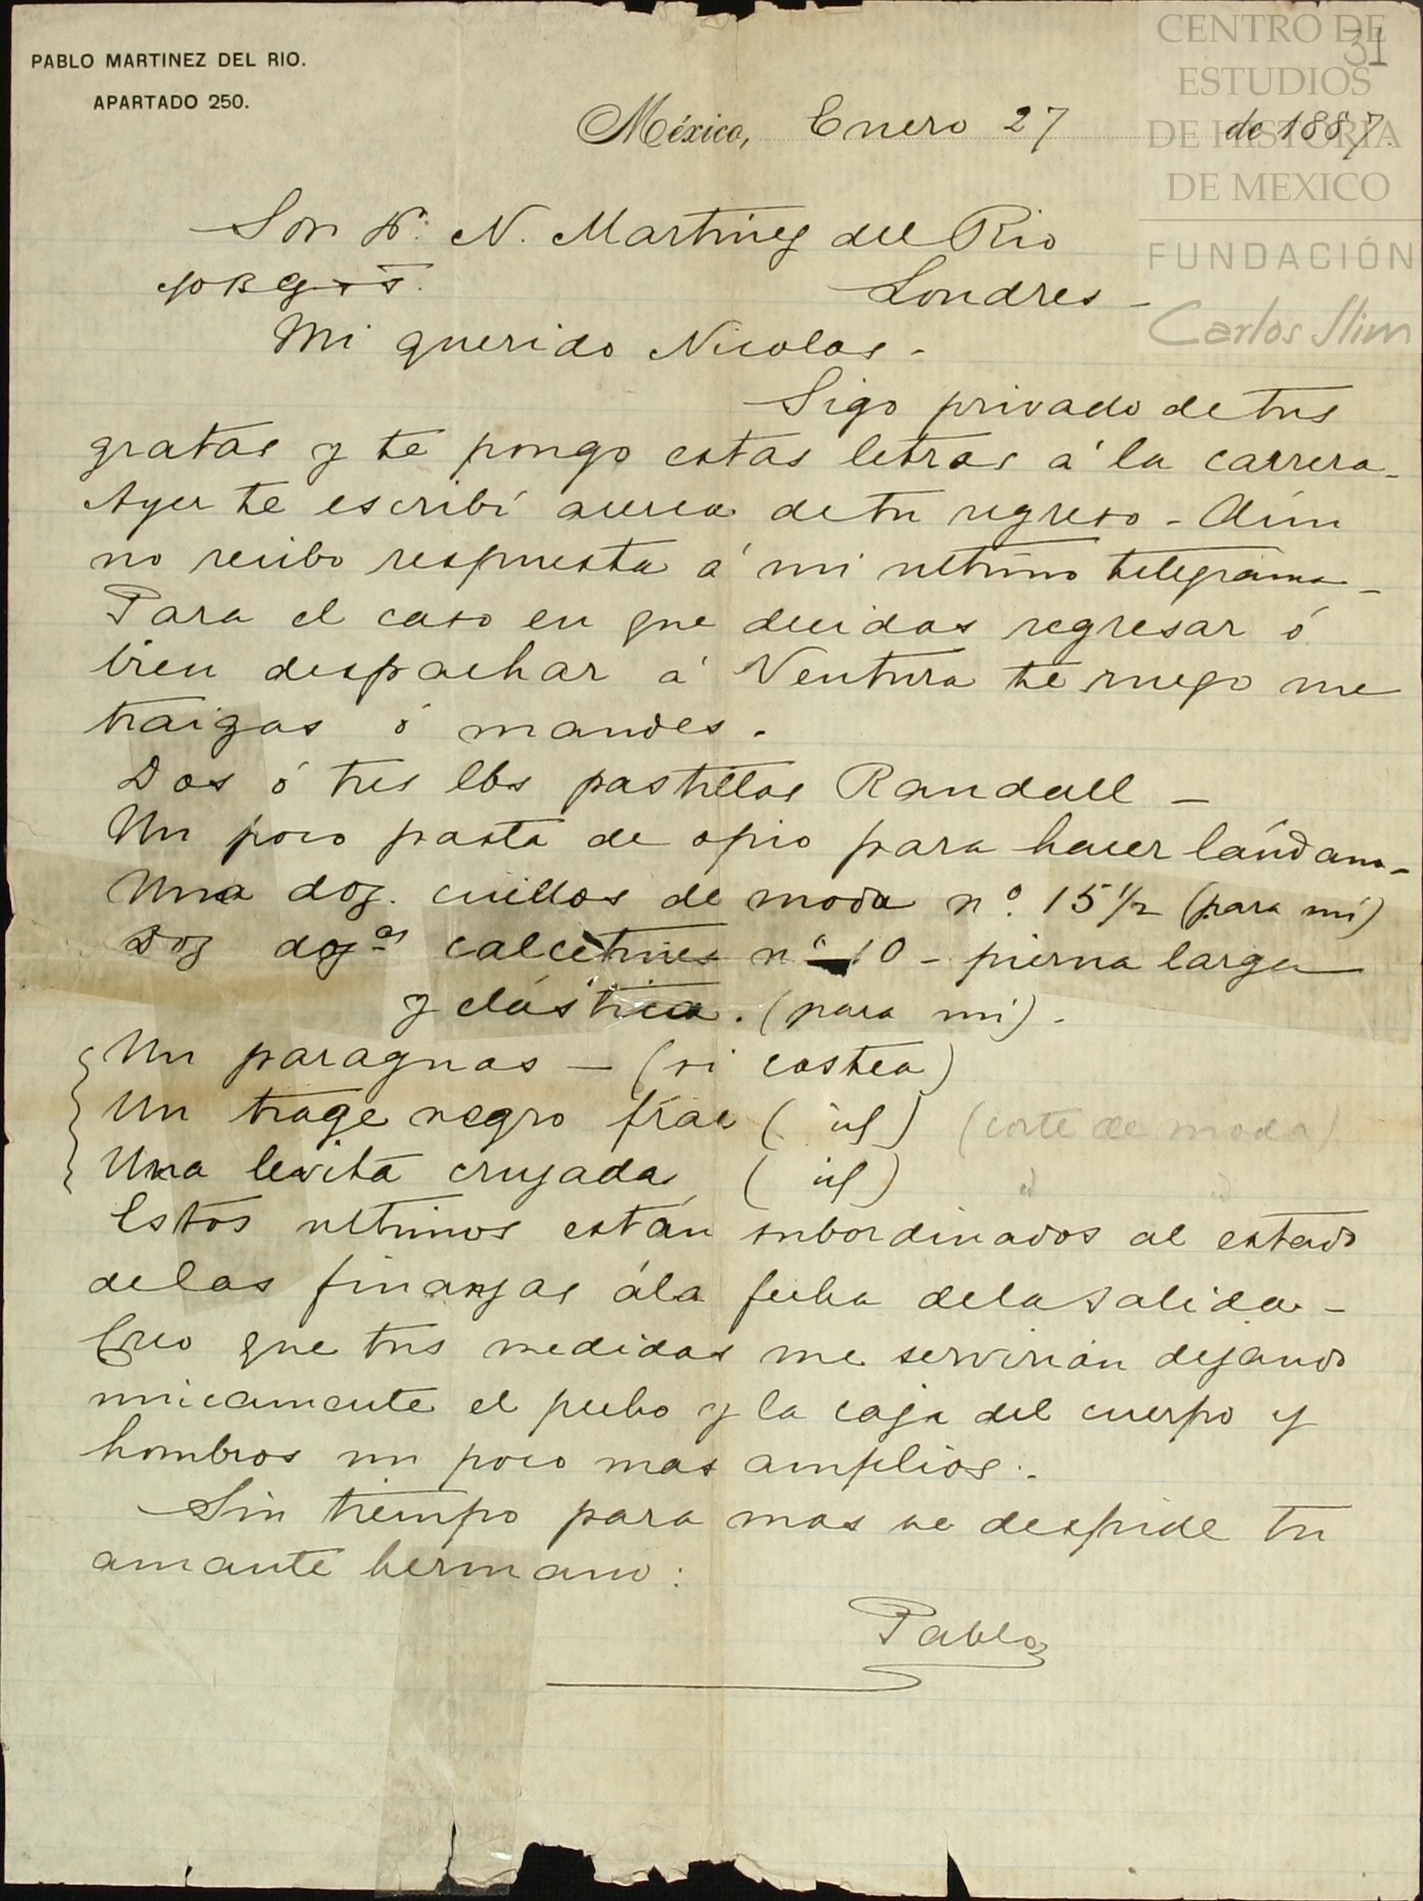 PABLO MARTINEZ DEL RIO.
APARTADO 250.
CENTRO DE
ESTUDIOS
DE HISTORIA
DE MEXICO
FUNDACIÓN
Carlos Slim
31
México, Enero 27 de 1887.
N. Martinez del Rio
Londres -
Mi querido Nicolas -
Sigo privado de tus
gratas y te pongo estas letras á la carrera -
Ayer te escribí acerca de tu regreso - Aún
no recibo respuesta á mi ultimo telegrama -
Para el caso en que decidas regresar ó
bien despachar á Ventura te ruego me
traigas ó mandes -
Dos ó tres lbs pastillas Randall -
Un poco pasta de opio para hacer láudano -
Una doz. cuellos de moda nº. 15 1/2 (para mí)
Doz dozas calcetines nº 10 - pierna larga
y elástica. (para mí) -
Un paraguas - (si costea)
Un trage negro frac ( id ) (corte de moda)
Una levita cruzada ( id )
Estos ultimos están subordinados al estado
de las finanzas á la fecha de la salida -
Creo que tus medidas me servirían dejando
unicamente el pecho y la caja del cuerpo y
hombros un poco mas amplios -
Sin tiempo para mas se despide tu
amante hermano:
Pablo